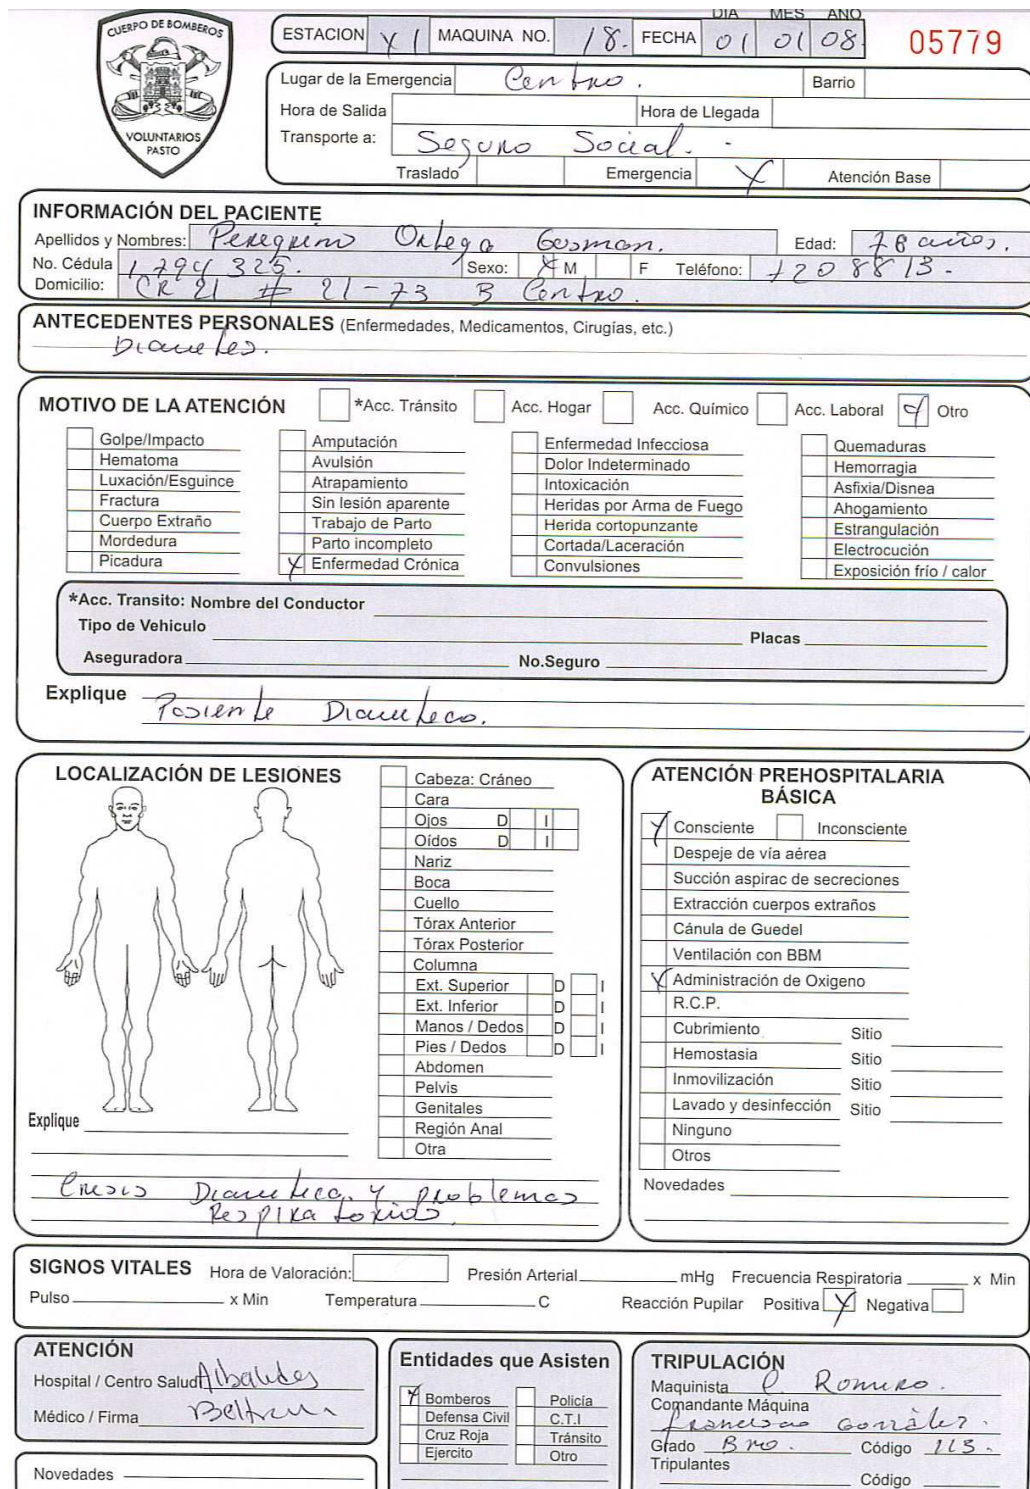 CUERPO DE BOMBEROS
VOLUNTARIOS
PASTO
DIA MES AÑO
ESTACION X1 MAQUINA NO. 18. FECHA 01 01 08. 05779
Lugar de la Emergencia Centro. Barrio
Hora de Salida Hora de Llegada
Transporte a: Seguro Social.
Traslado Emergencia X Atención Base
INFORMACIÓN DEL PACIENTE
Apellidos y Nombres: Peregrino Ortega Gosman. Edad: 78 años.
No. Cédula 1.794 325. Sexo: X M F Teléfono: 7208813-
Domicilio: CR 21 # 21-73 B Centro.
ANTECEDENTES PERSONALES (Enfermedades, Medicamentos, Cirugías, etc.)
Diavetes.
MOTIVO DE LA ATENCIÓN *Acc. Tránsito Acc. Hogar Acc. Químico Acc. Laboral X Otro
Golpe/Impacto Amputación Enfermedad Infecciosa Quemaduras
Hematoma Avulsión Dolor Indeterminado Hemorragia
Luxación/Esguince Atrapamiento Intoxicación Asfixia/Disnea
Fractura Sin lesión aparente Heridas por Arma de Fuego Ahogamiento
Cuerpo Extraño Trabajo de Parto Herida cortopunzante Estrangulación
Mordedura Parto incompleto Cortada/Laceración Electrocución
Picadura X Enfermedad Crónica Convulsiones Exposición frío / calor
*Acc. Transito: Nombre del Conductor
Tipo de Vehiculo Placas
Aseguradora No.Seguro
Explique
Pasiente Diaveteco.
LOCALIZACIÓN DE LESIONES
Cabeza: Cráneo
Cara
Ojos D I
Oídos D I
Nariz
Boca
Cuello
Tórax Anterior
Tórax Posterior
Columna
Ext. Superior D I
Ext. Inferior D I
Manos / Dedos D I
Pies / Dedos D I
Abdomen
Pelvis
Genitales
Región Anal
Otra
Explique
Cresis Diaveteca. y problemas
Respiratorios.
ATENCIÓN PREHOSPITALARIA
BÁSICA
X Consciente Inconsciente
Despeje de vía aérea
Succión aspirac de secreciones
Extracción cuerpos extraños
Cánula de Guedel
Ventilación con BBM
X Administración de Oxigeno
R.C.P.
Cubrimiento Sitio
Hemostasia Sitio
Inmovilización Sitio
Lavado y desinfección Sitio
Ninguno
Otros
Novedades
SIGNOS VITALES Hora de Valoración: Presión Arterial mHg Frecuencia Respiratoria x Min
Pulso x Min Temperatura C Reacción Pupilar Positiva X Negativa
ATENCIÓN
Hospital / Centro Salud
Médico / Firma Beltran
Novedades
Entidades que Asisten
X Bomberos Policía
Defensa Civil C.T.I
Cruz Roja Tránsito
Ejercito Otro
TRIPULACIÓN
Maquinista Romero.
Comandante Máquina
Francisco González.
Grado Bro. Código 113.
Tripulantes
Código